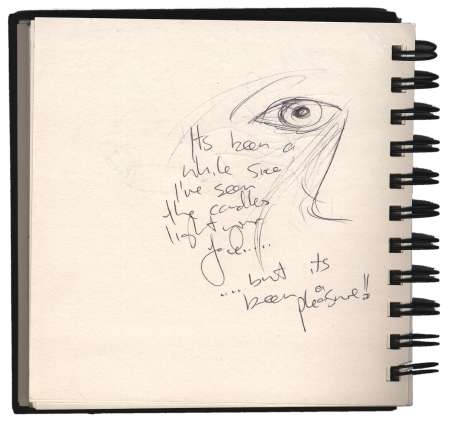 Its been a
while since
I've seen
the candles
light your
face.....
....but its
been a
pleasure!!